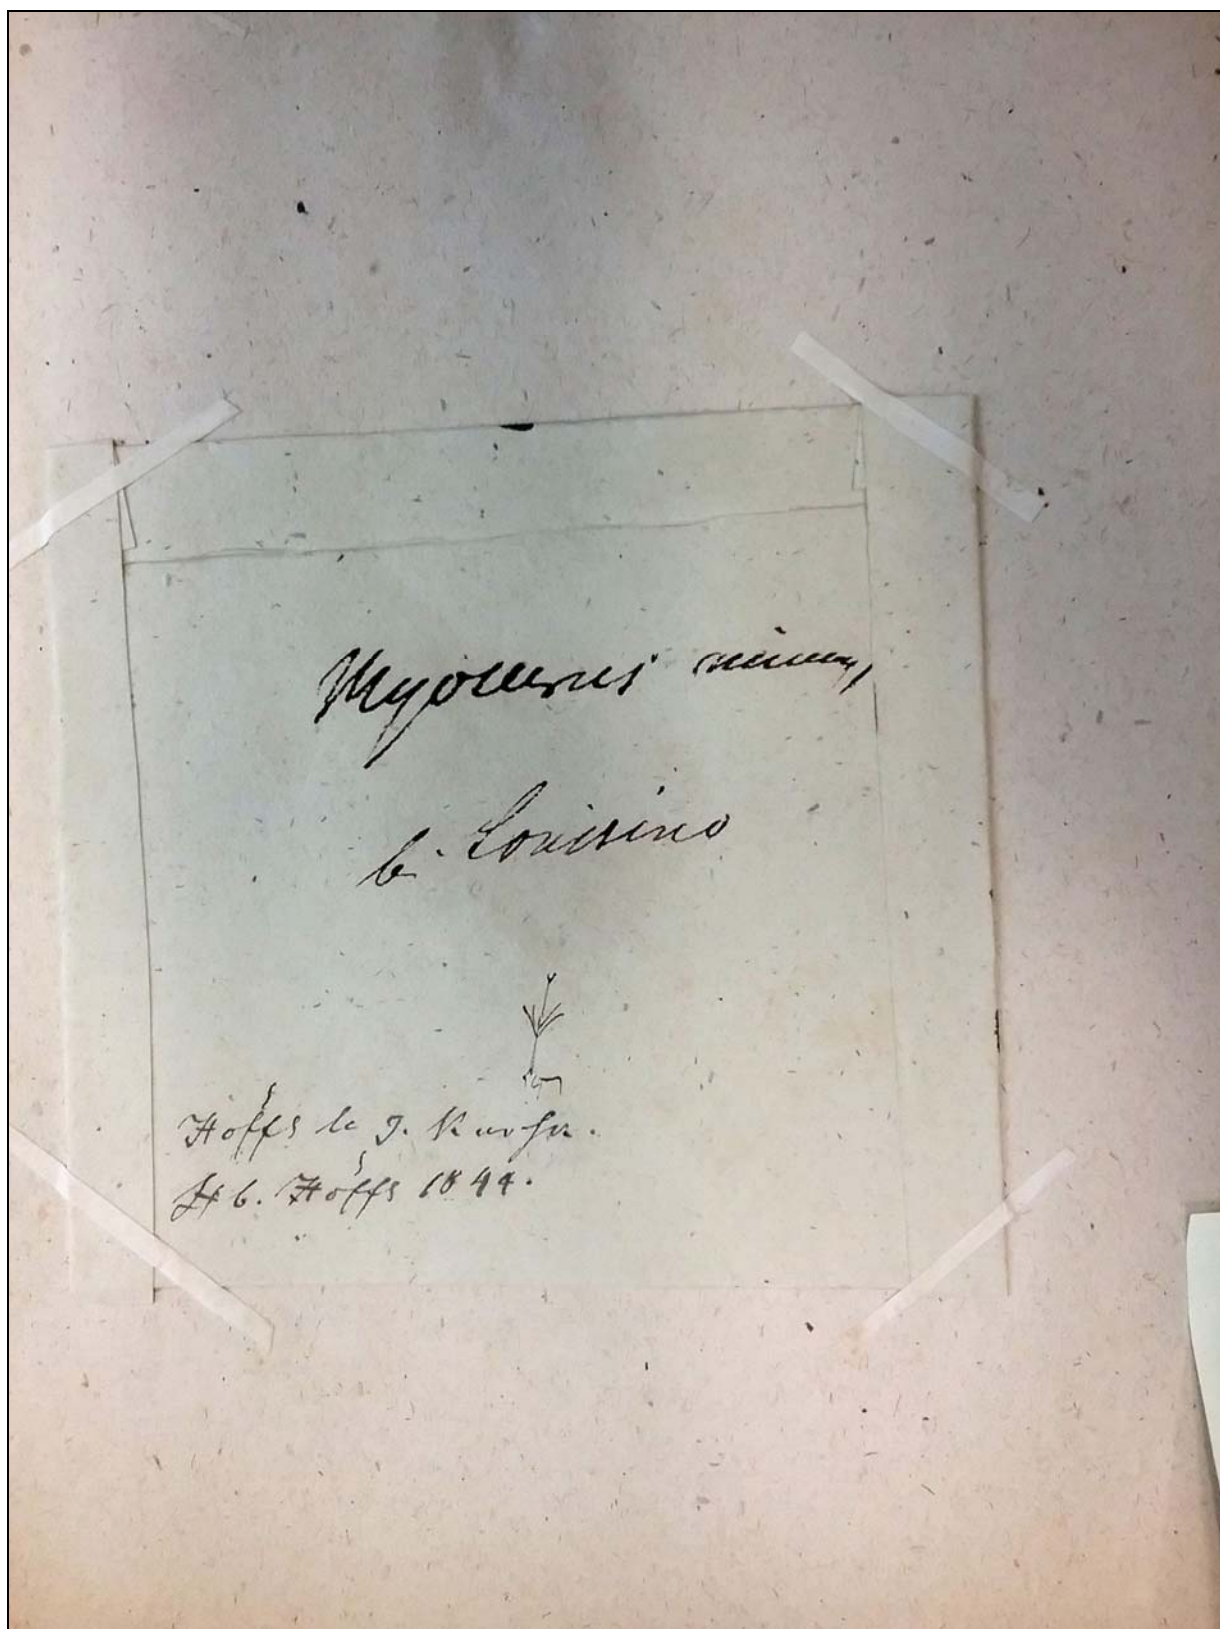 Myosurus minimus,
b. Louisino
Höffs le g. Kursk.
Hb. Höffs 1844.